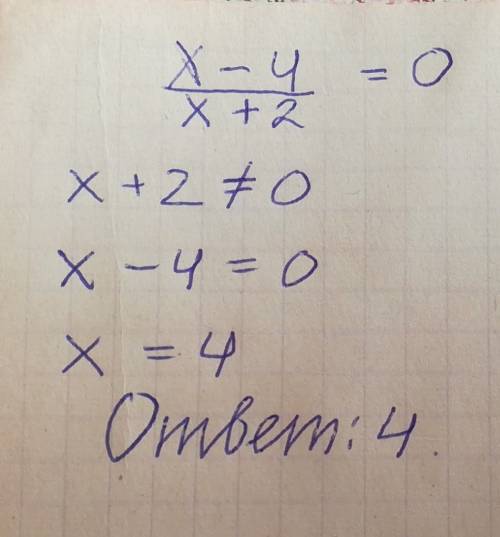 x - 4
x + 2
= 0
x + 2 ≠ 0
x - 4 = 0
x = 4
Ответ: 4.